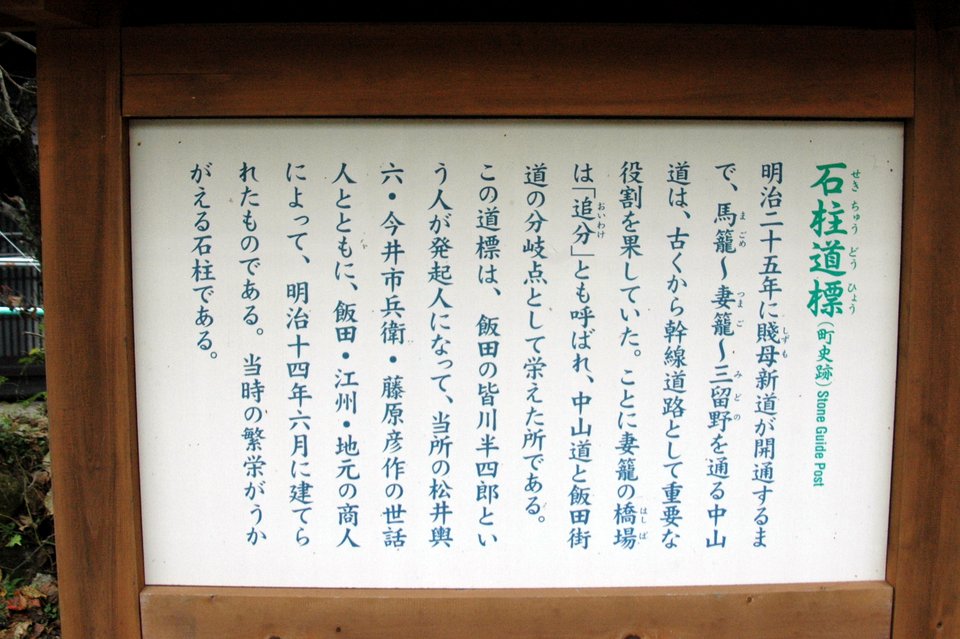 石柱道標（町史跡）Stone Guide Post
明治二十五年に賤母新道が開通するま
で、馬籠〜妻籠〜三留野を通る中山
道は、古くから幹線道路として重要な
役割を果していた。ことに妻籠の橋場
は「追分」とも呼ばれ、中山道と飯田街
道の分岐点として栄えた所である。
この道標は、飯田の皆川半四郎とい
う人が発起人になって、当所の松井輿
六・今井市兵衛・藤原彦作の世話
人とともに、飯田・江州・地元の商人
によって、明治十四年六月に建てら
れたものである。当時の繁栄がうか
がえる石柱である。